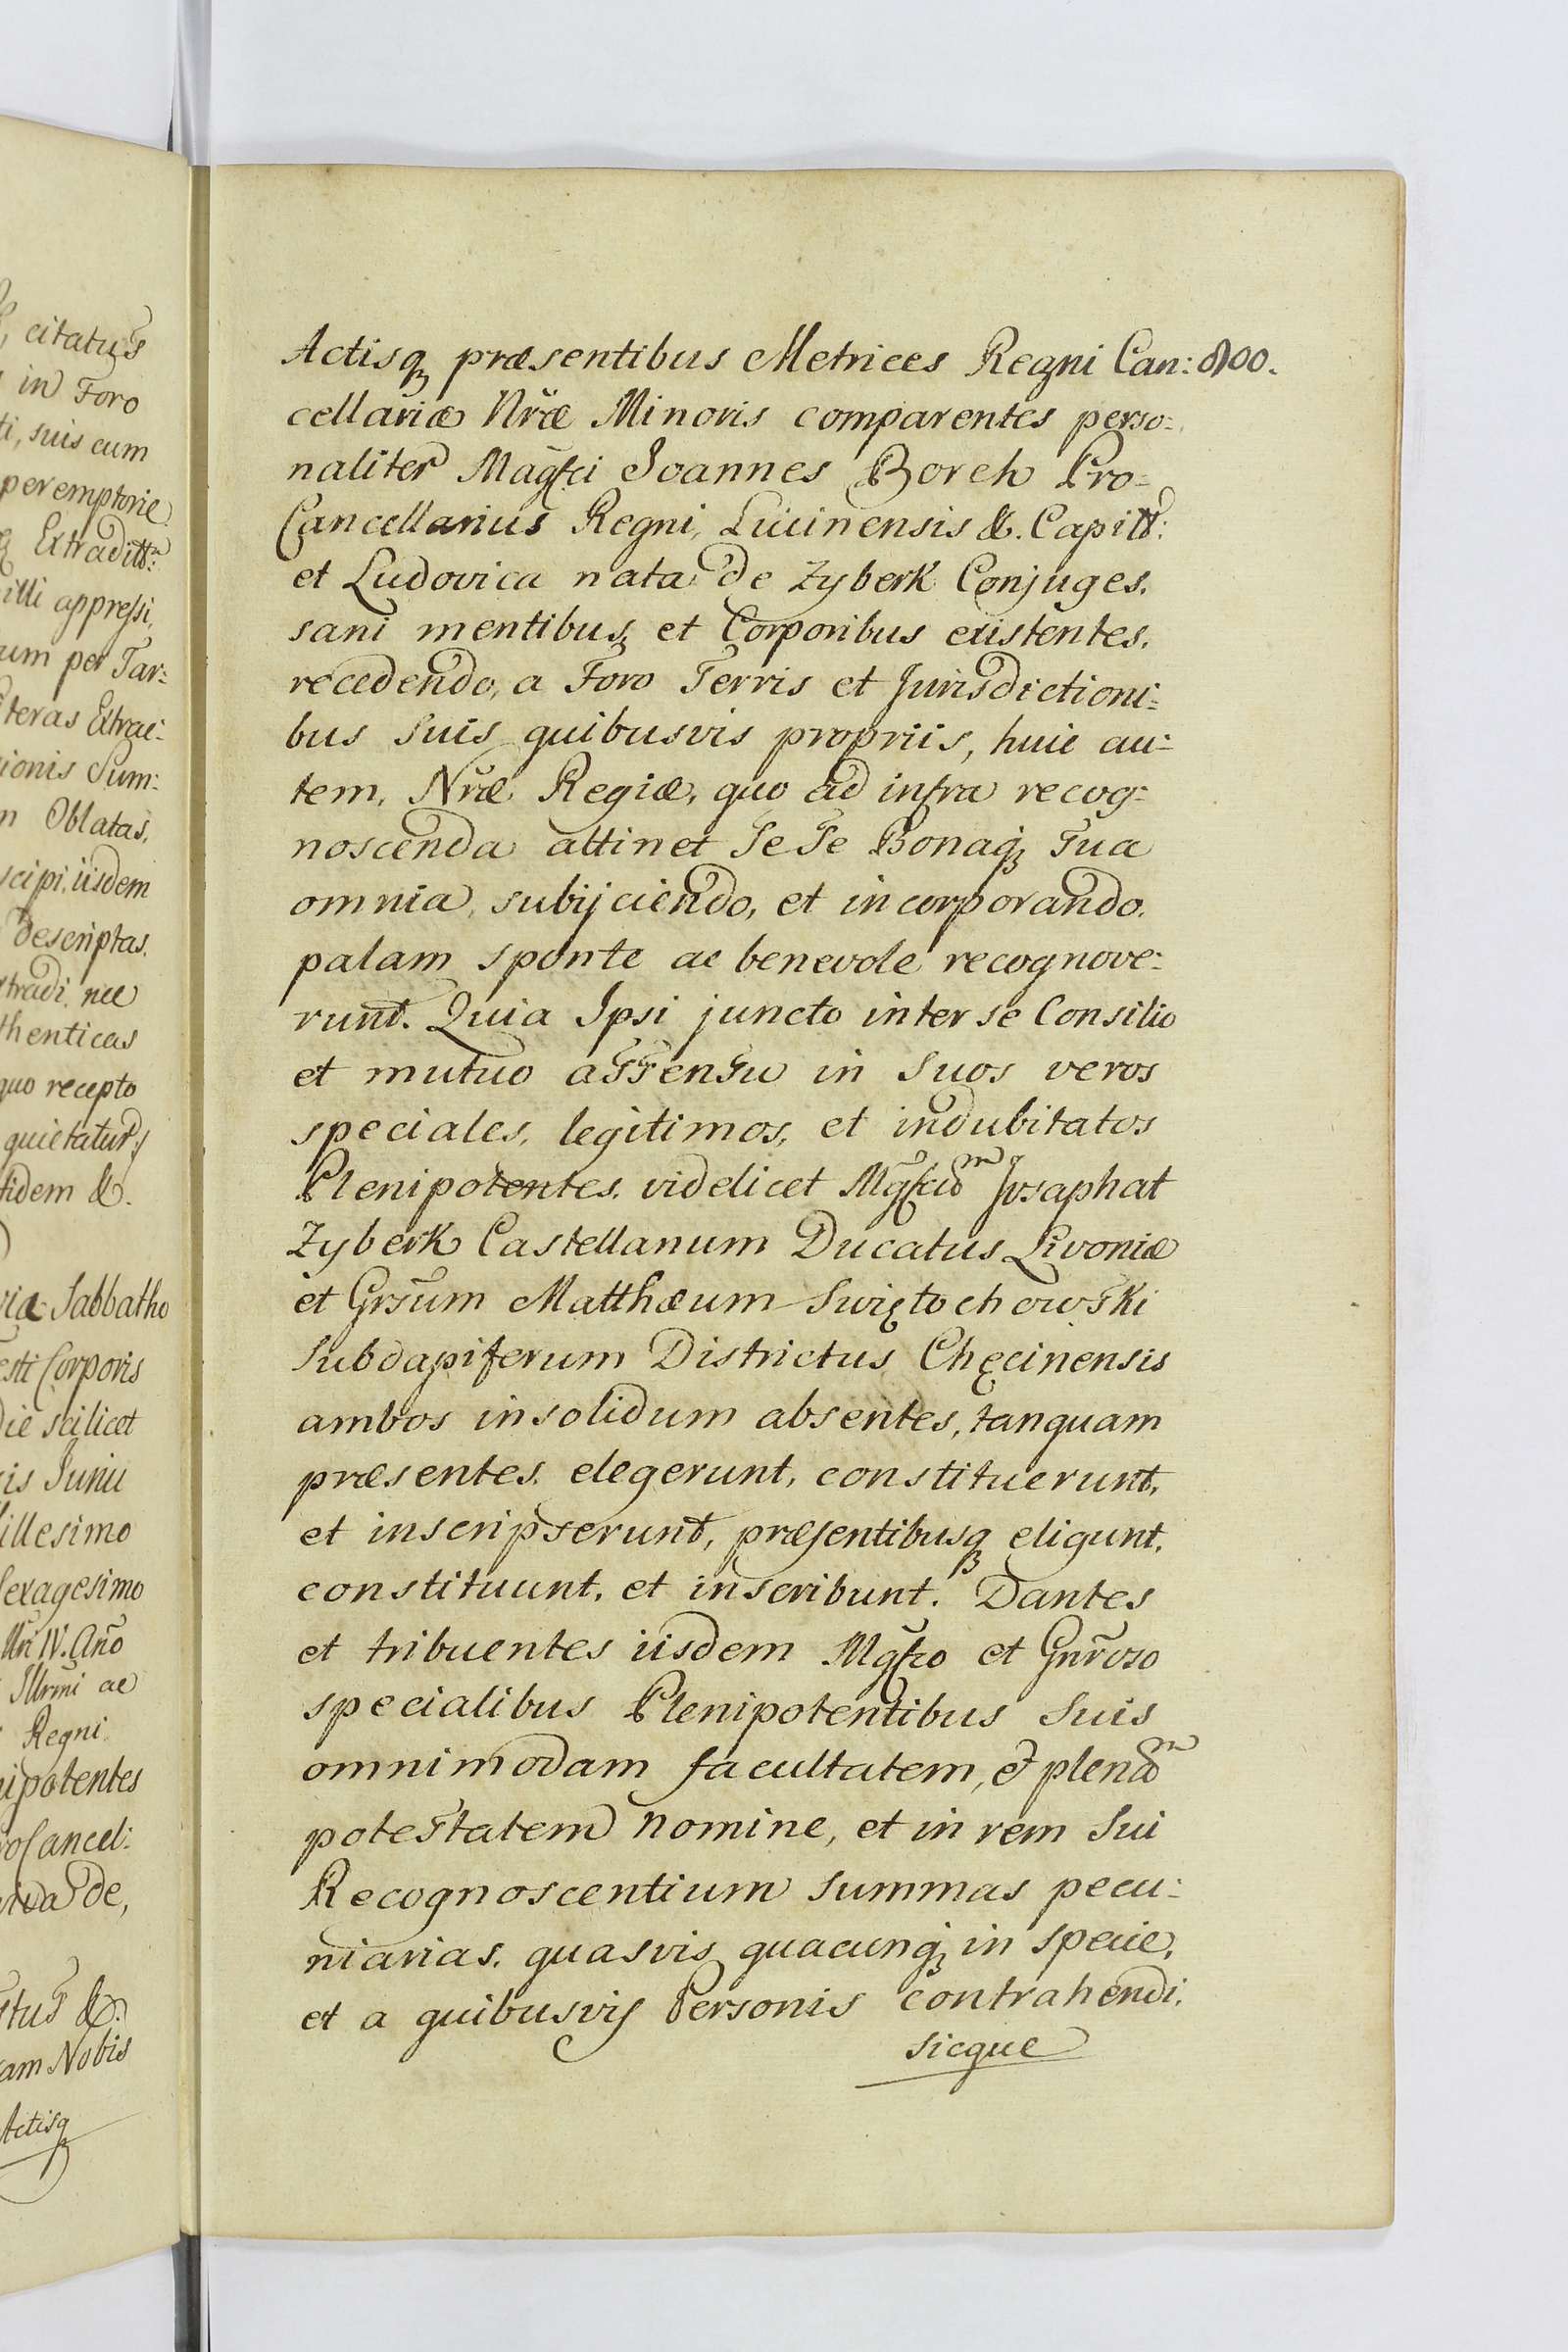 , citatus
in Foro
ti, suis cum
peremptorie
Extraditt:
illi appressi,
um per Tar:
teras Extrac:
ionis Sum:
m Oblatas,
scipi, iisdem
descriptas.
tradi, nec
thenticas
quo recepto
quietatur,
fidem &.
ria Sabbatho
esti Corporis
die scilicet
is Junii
illesimo
sexagesimo
IV. Año
Illrmi ac
Regni
ipotentes
oCancel:
de,
stus &.
am Nobis
Actisq
800.
Actisq præsentibus Metrices Regni Can:
cellariæ Nræ Minoris comparentes perso:
naliter Magfci Joannes Borch Pro:
Cancellarius Regni, Lucinensis &. Capitt:
et Ludovica nata de Zyberk Conjuges,
sani mentibus, et Corporibus existentes,
recedendo, a Foro Terris et Jurisdictioni:
bus Suis quibusvis propriis, huic au:
tem, Nræ Regiæ, quo ad infra recog:
noscenda attinet Se Se Bonaq Sua
omnia, subijciendo, et incorporando,
palam sponte ac benevole recognove:
runt. Quia Ipsi juncto inter se Consilio
et mutuo assensu in Suos veros
speciales, legitimos, et indubitatos
Plenipotentes, videlicet Mgfcum Josaphat
Zyberk Castellanum Ducatus Livoniæ
et Grsum Matthæum Swiętochowski
Subdapiferum Districtus Chęcinensis
ambos insolidum absentes, tanquam
præsentes, elegerunt, constituerunt,
et inscripserunt, præsentibusq eligunt,
constituunt, et inscribunt. Dantes
et tribuentes iisdem Mgfco et Gnroso
specialibus Plenipotentibus Suis
omnimodam facultatem, et plenam
potestatem nomine, et in rem Sui
Recognoscentium summas pecu:
niarias, quasvis quacunq in specie,
et a quibusvis Personis contrahendi,
sicque